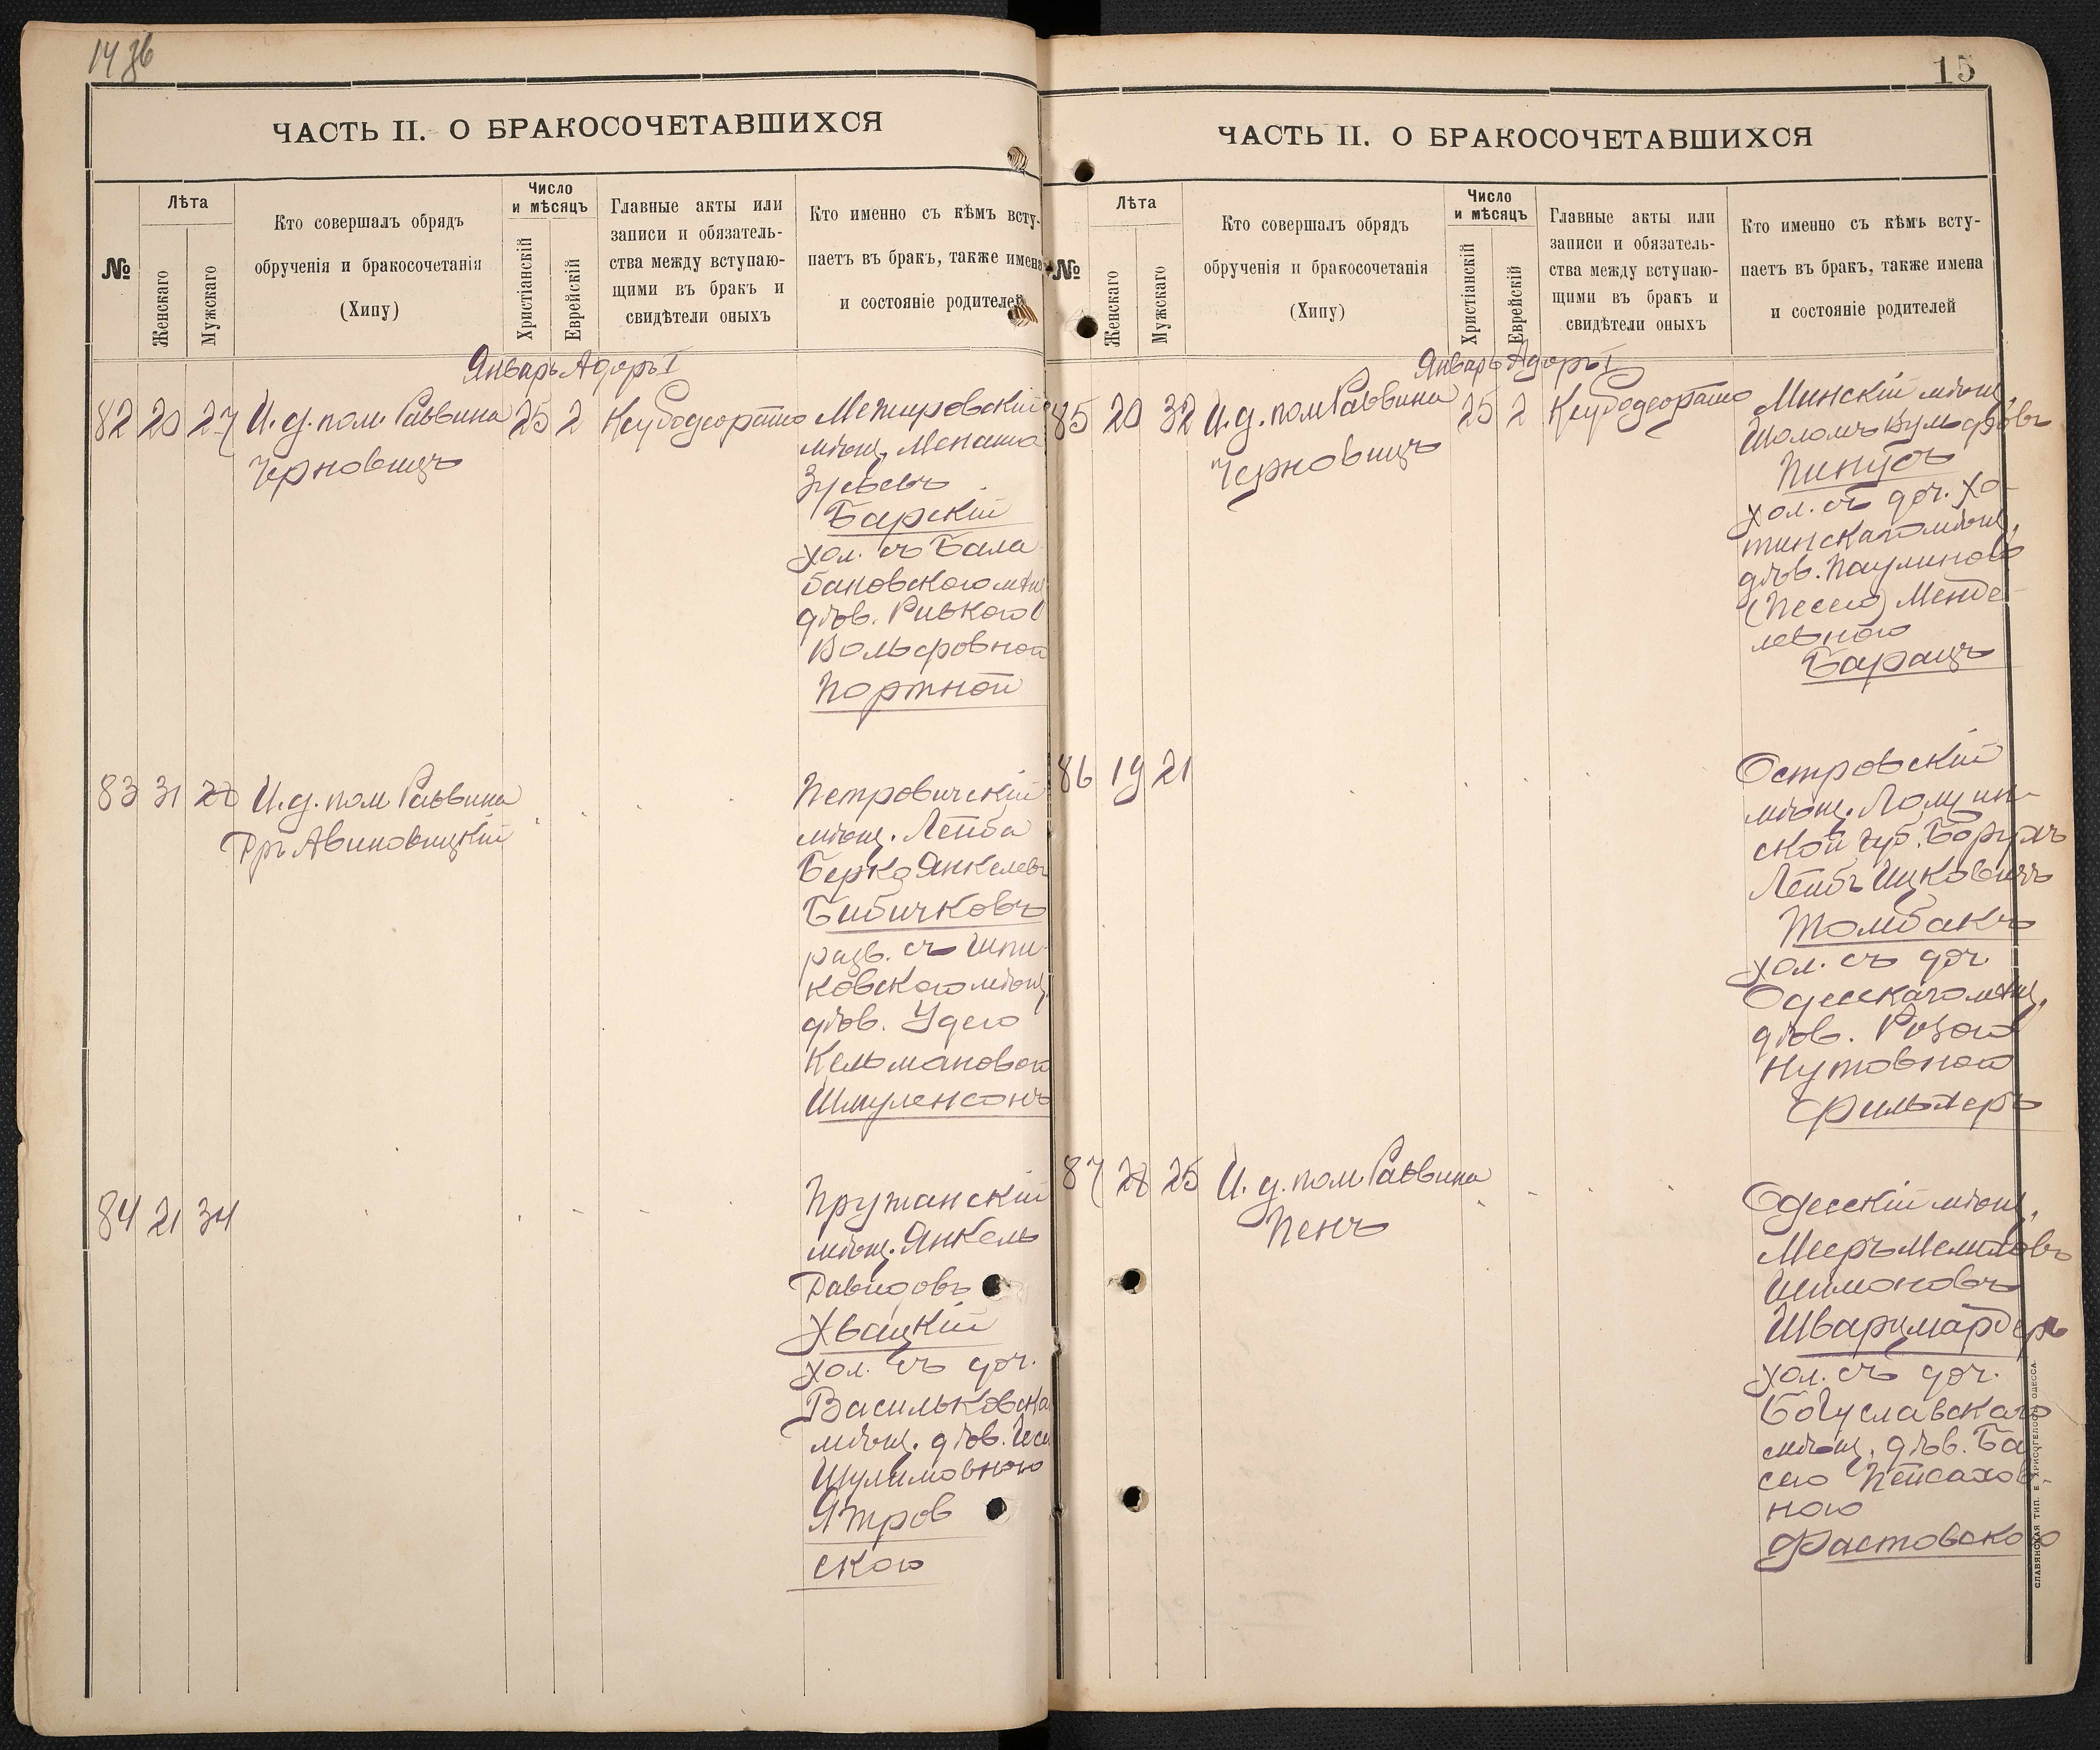 14 об
ЧАСТЬ II. О БРАКОСОЧЕТАВШИХСЯ
№
Лѣта
Женскаго
Мужскаго
Кто совершалъ обрядъ
обрученія и бракосочетанія
(Хипу)
Число
и мѣсяцъ
Христіанскій
Еврейскій
Главные акты или
записи и обязатель-
ства между вступаю-
щими въ бракъ и
свидѣтели оныхъ
Кто именно съ кѣмъ всту-
паетъ въ бракъ, также имена
и состояніе родителей
Январь Адоръ I
82 20 27 И. д. пом. Раввина 25 2
Черновицъ
Межировскій
мѣщ. Менаша
Зусьевъ
Барскій
хол. съ Бала
бановскою мѣщ
дѣв. Ривкою
Вольфовной
Портной
83 31 28 И. д. пом Раввина
Д-ръ Авиновицкій
Петровичскій
мѣщ. Лейба
Берко Янкелевъ
Бибичковъ
разв. съ Шпи-
ковскою мѣщ
дѣв. Удею
Кельмановой
Шмуленсонъ
84 21 34
Пружанскій
мѣщ. Янкель
Давидовъ
Хвацкій
хол. съ доч.
Васильковска
мѣщ. дѣв.
Шулимовною
Ятров
скою
15
ЧАСТЬ II. О БРАКОСОЧЕТАВШИХСЯ
№
Лѣта
Женскаго
Мужскаго
Кто совершалъ обрядъ
обрученія и бракосочетанія
(Хипу)
Число
и мѣсяцъ
Христіанскій
Еврейскій
Главные акты или
записи и обязатель-
ства между вступаю-
щими въ бракъ и
свидѣтели оныхъ
Кто именно съ кѣмъ всту-
паетъ въ бракъ, также имена
и состояніе родителей
Январь Адоръ I
85 20 32 И. д. пом Раввина 25 2
Черновицъ
Минскій мѣщ
Шоломъ Вульфовъ
Пинусъ
хол. съ доч. Хо-
тинскаго мѣщ.
дѣв. Паулиною
(Песею) Менде-
левною
Барацъ
86 19 21
Островскій
мѣщ. Ломжин-
ской губ. Борухъ
Лейбъ Ицковичъ
Томбакъ
хол. съ доч
Одесскаго мѣщ.
дѣв. Розою
Нутовною
Фильлеръ
87 28 25 И. д. пом Раввина
Пенъ
Одесскій мѣщ.
Мееръ
Шимоновъ
Шварцмардеръ
хол. съ доч.
Богуславскаго
мѣщ. дѣв. Ба
сею Пейсахов-
ною
Фастовскою
СЛАВЯНСКАЯ ТИП. Е. ХРИСОГЕЛОСЪ ОДЕССА.